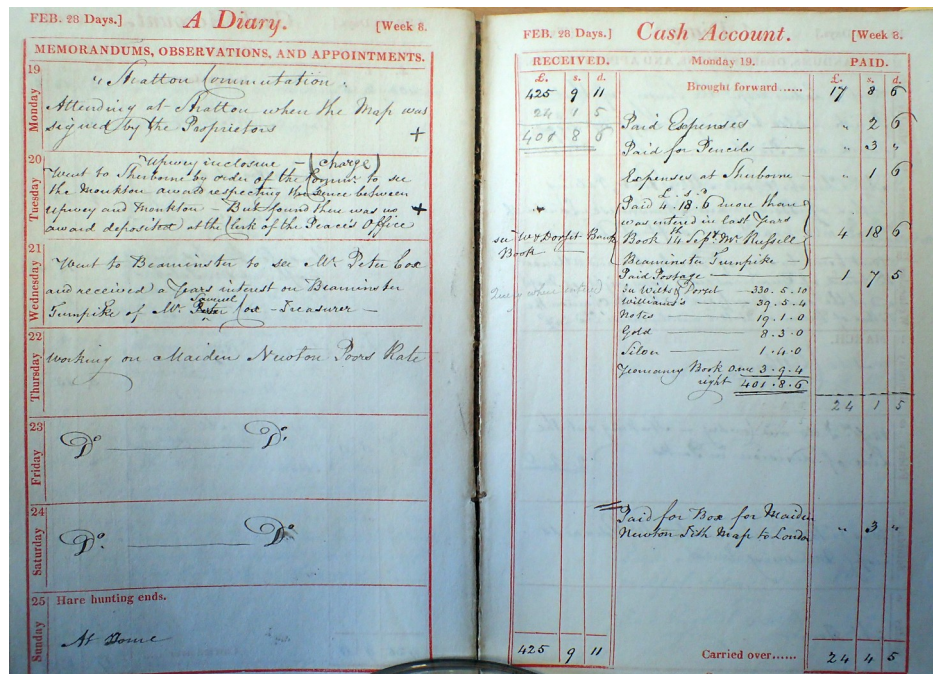 FEB. 28 Days.] A Diary. [Week 8.
MEMORANDUMS, OBSERVATIONS, AND APPOINTMENTS.
19 Monday
"Stratton Commutation"
Attending at Stratton when the Map was
signed by the Proprietors +
20 Tuesday
Upwey inclosure – (charge)
Went to Sherborne by order of the Commr to see
the Monkton award respecting the fence between
Upwey and Monkton – But found there was no +
award deposited at the Clerk of the Peace's Office
21 Wednesday
Went to Beaminster to see Mr Peter Cox
and received a Years interest on Beaminster
Samuel
Turnpike of Mr Peter Cox – Treasurer –
22 Thursday
Working on Maiden Newton Poors Rate
23 Friday
Do. Do.
24 Saturday
Do. Do.
25 Sunday
Hare hunting ends.
At Home
FEB. 28 Days.] Cash Account. [Week 8.
RECEIVED. Monday 19. PAID.
£. s. d. £. s. d.
425 9 11 Brought forward...... 17 8 6
24 1 5
401 8 6
Paid Expenses – " 2 6
Paid for Pencils " 3 "
Expenses at Sherborne – " 1 6
£ s. d.
Paid 4.18.6 more than
was entered in last Years
see W & Dorset Bank Book 14th Sept. Mr Russell 4 18 6
Book
Beaminster Turnpike –
Paid Postage 1 7 5
In Wilts & Dorset 330.5.10
Williams's 39.5.4
Notes 19.1.0
Gold 8.3.0
Silver 1.4.0
Yeomanry Book owe 3.9.4
right 401.8.6
24 1 5
Paid for Box for Maiden
Newton Tith Map to London " 3 "
425 9 11 Carried over...... 24 4 5